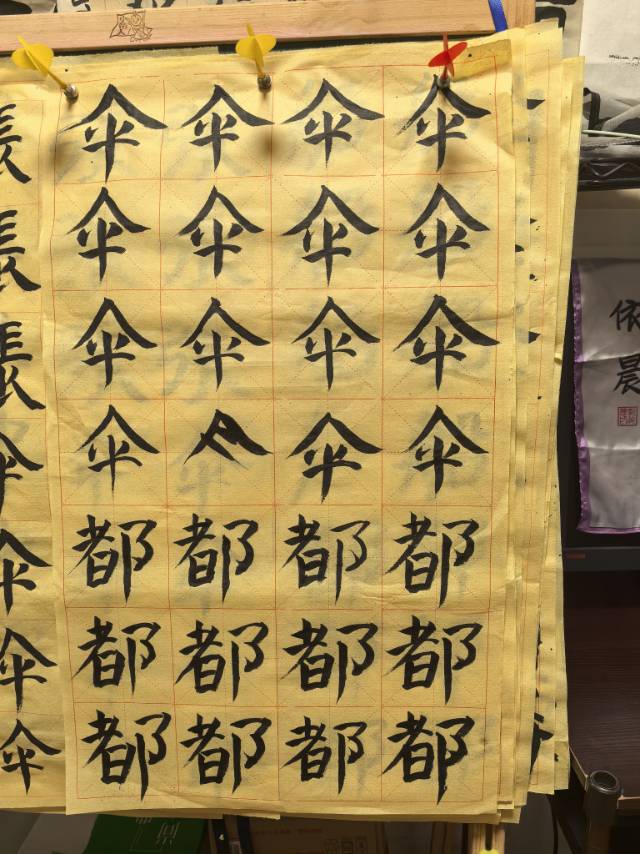 伞伞伞伞
伞伞伞伞
伞伞伞伞
伞伞伞
都都都都
都都都都
都都都都
伞
伞
伞
伞
依
晨